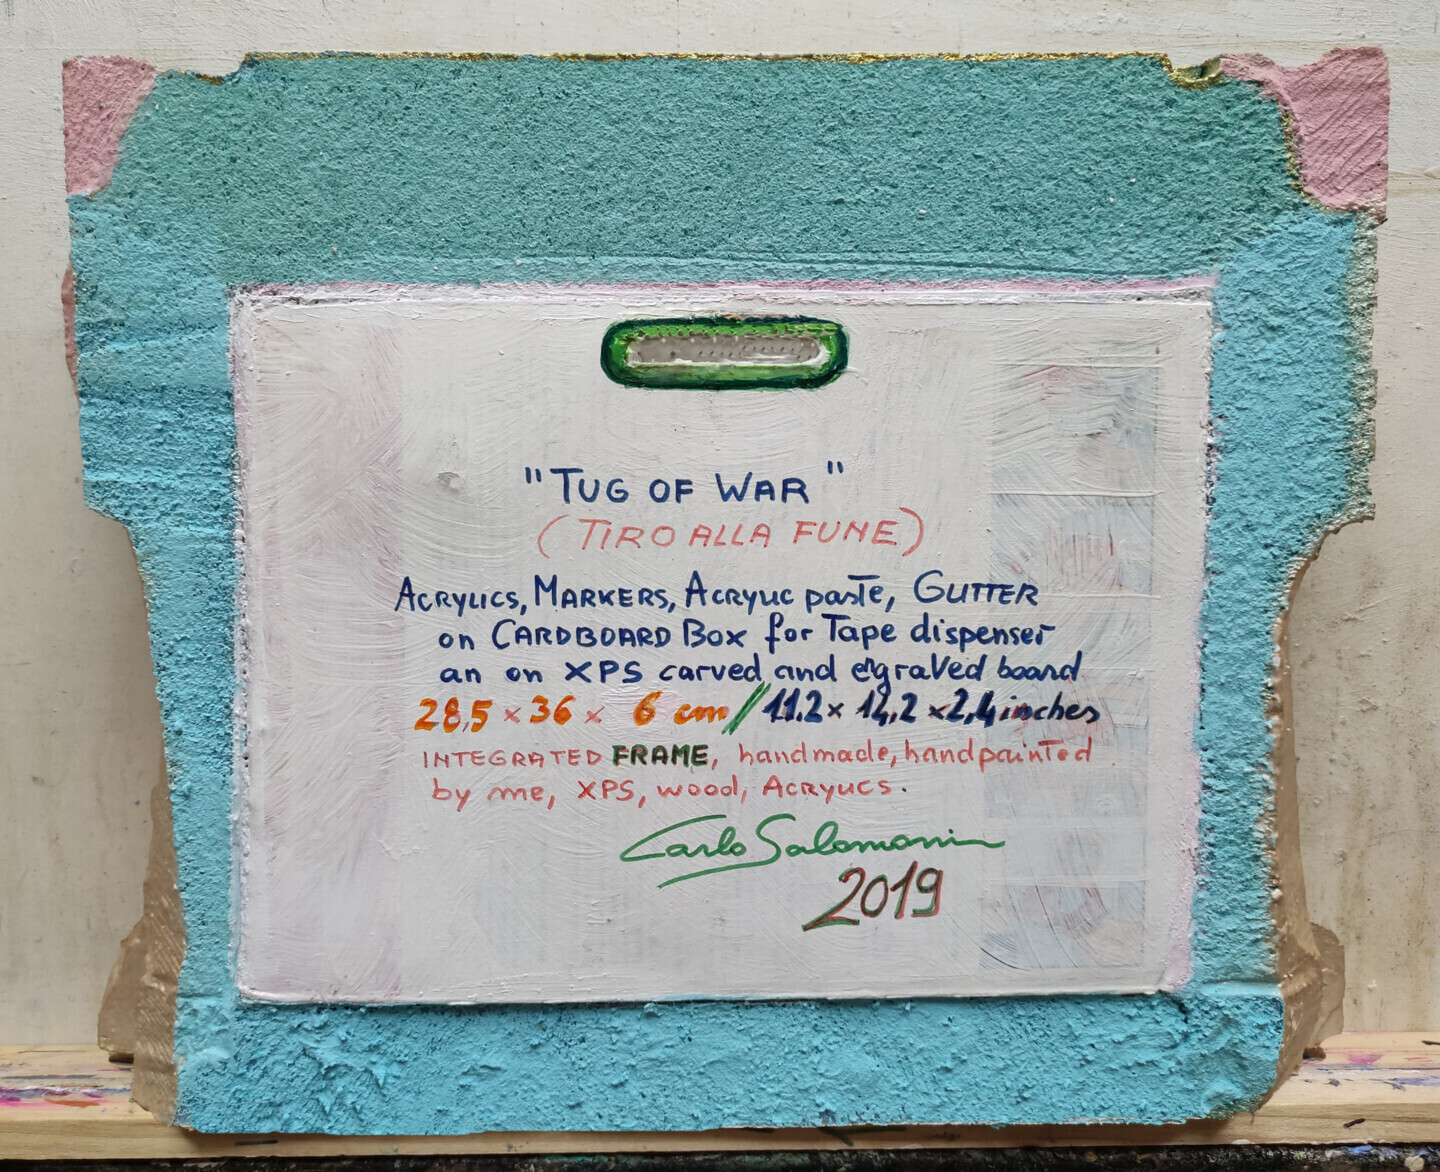 "TUG OF WAR"
(TIRO ALLA FUNE)
ACRYLICS, MARKERS, ACRYLIC pasTe, GLITTER
on CARDBOARD BOX for Tape dispenser
an on XPS carved and engraved board
28,5 x 36 x 6 cm // 11.2 x 14,2 x 2,4 inches
INTEGRATED FRAME, handmade, handpainted
by me, XPS, wood, ACRYLICS.
Carlo Salomoni
2019